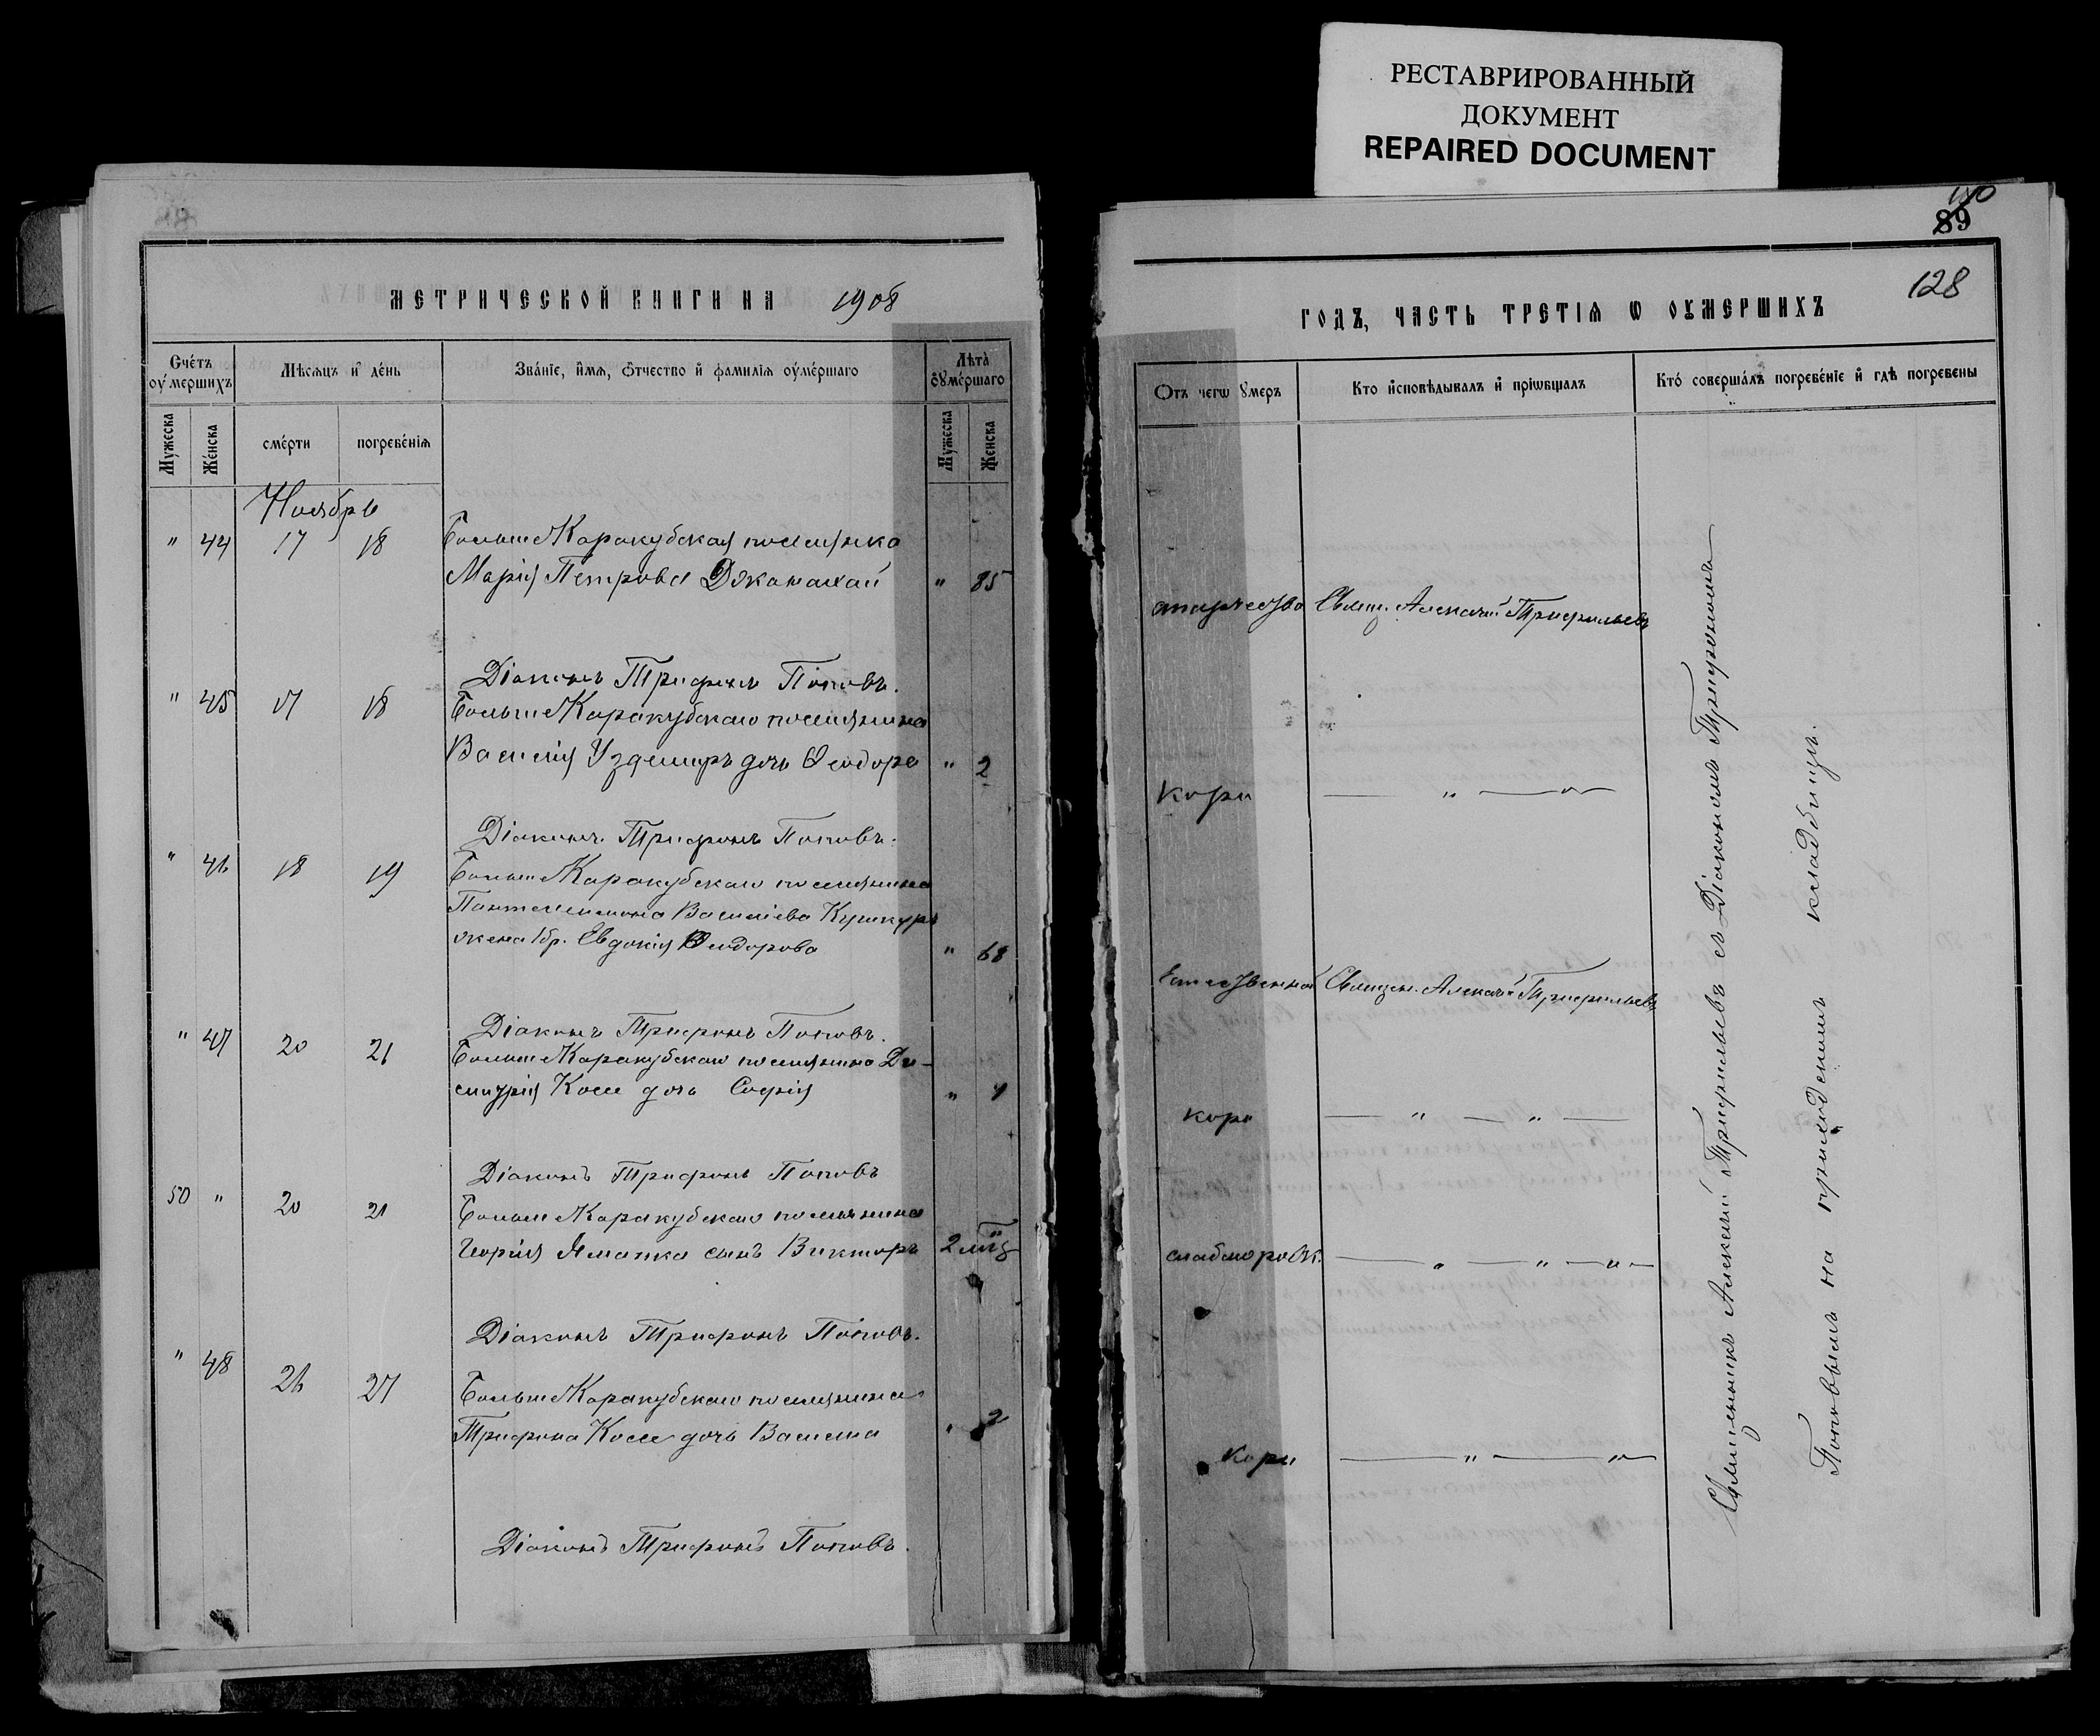 РЕСТАВРИРОВАННЫЙ
ДОКУМЕНТ
REPAIRED DOCUMENT
МЕТРИЧЕСКОЙ КНИГИ НА 1908
Счетъ оумершихъ
Мѣсяцъ и день
Званіе, имя, отчество и фамилія оумершаго
Лѣта оумершаго
Мужеска
Женска
смерти
погребенія
Мужеска
Женска
Ноябрь
" 44 17 18 Больше Каракубская поселянка
Марія Петрова Джанахай " 85
Діаконъ Трифонъ Поповъ.
" 45 17 18 Больше Каракубскаго поселянина
Василія Узде­миръ дочь Ѳеодора " 2
Діаконъ Трифонъ Поповъ.
" 46 18 19 Больше Каракубскаго поселянина
Пантелеимона Василіева
жена 1 бр. Евдокія Ѳеодорова " 68
Діаконъ Трифонъ Поповъ.
" 47 20 21 Больше Каракубскаго поселянина Ди-
митрія Косе дочь Софія "
Діаконъ Трифонъ Поповъ
50 " 20 21 Больше Каракубскаго поселянина
Георгія Ялматка сынъ Викторъ 2
Діаконъ Трифонъ Поповъ.
" 48 26 27 Больше Каракубскаго поселянина
Трифона Косе дочь Василиа " 2
Діаконъ Трифонъ Поповъ.
89
128
ГОДЪ, ЧАСТЬ ТРЕТІЯ Ѡ ОУМЕРШИХЪ
Отъ чегѡ умеръ
Кто исповѣдывалъ и пріѡбщалъ
Кто совершалъ погребеніе и гдѣ погребены
старчества Свящ. Алексѣй Трифильевъ
кори — " — " —
Естественной Священ. Алексѣй Трифильевъ
кори — " — " —
слабаго рожд. — " — " — " —
кори — " — " —
Священникъ Алексѣй Трифильевъ съ Діакономъ Трифономъ
Поповымъ на приходскомъ кладбищѣ.